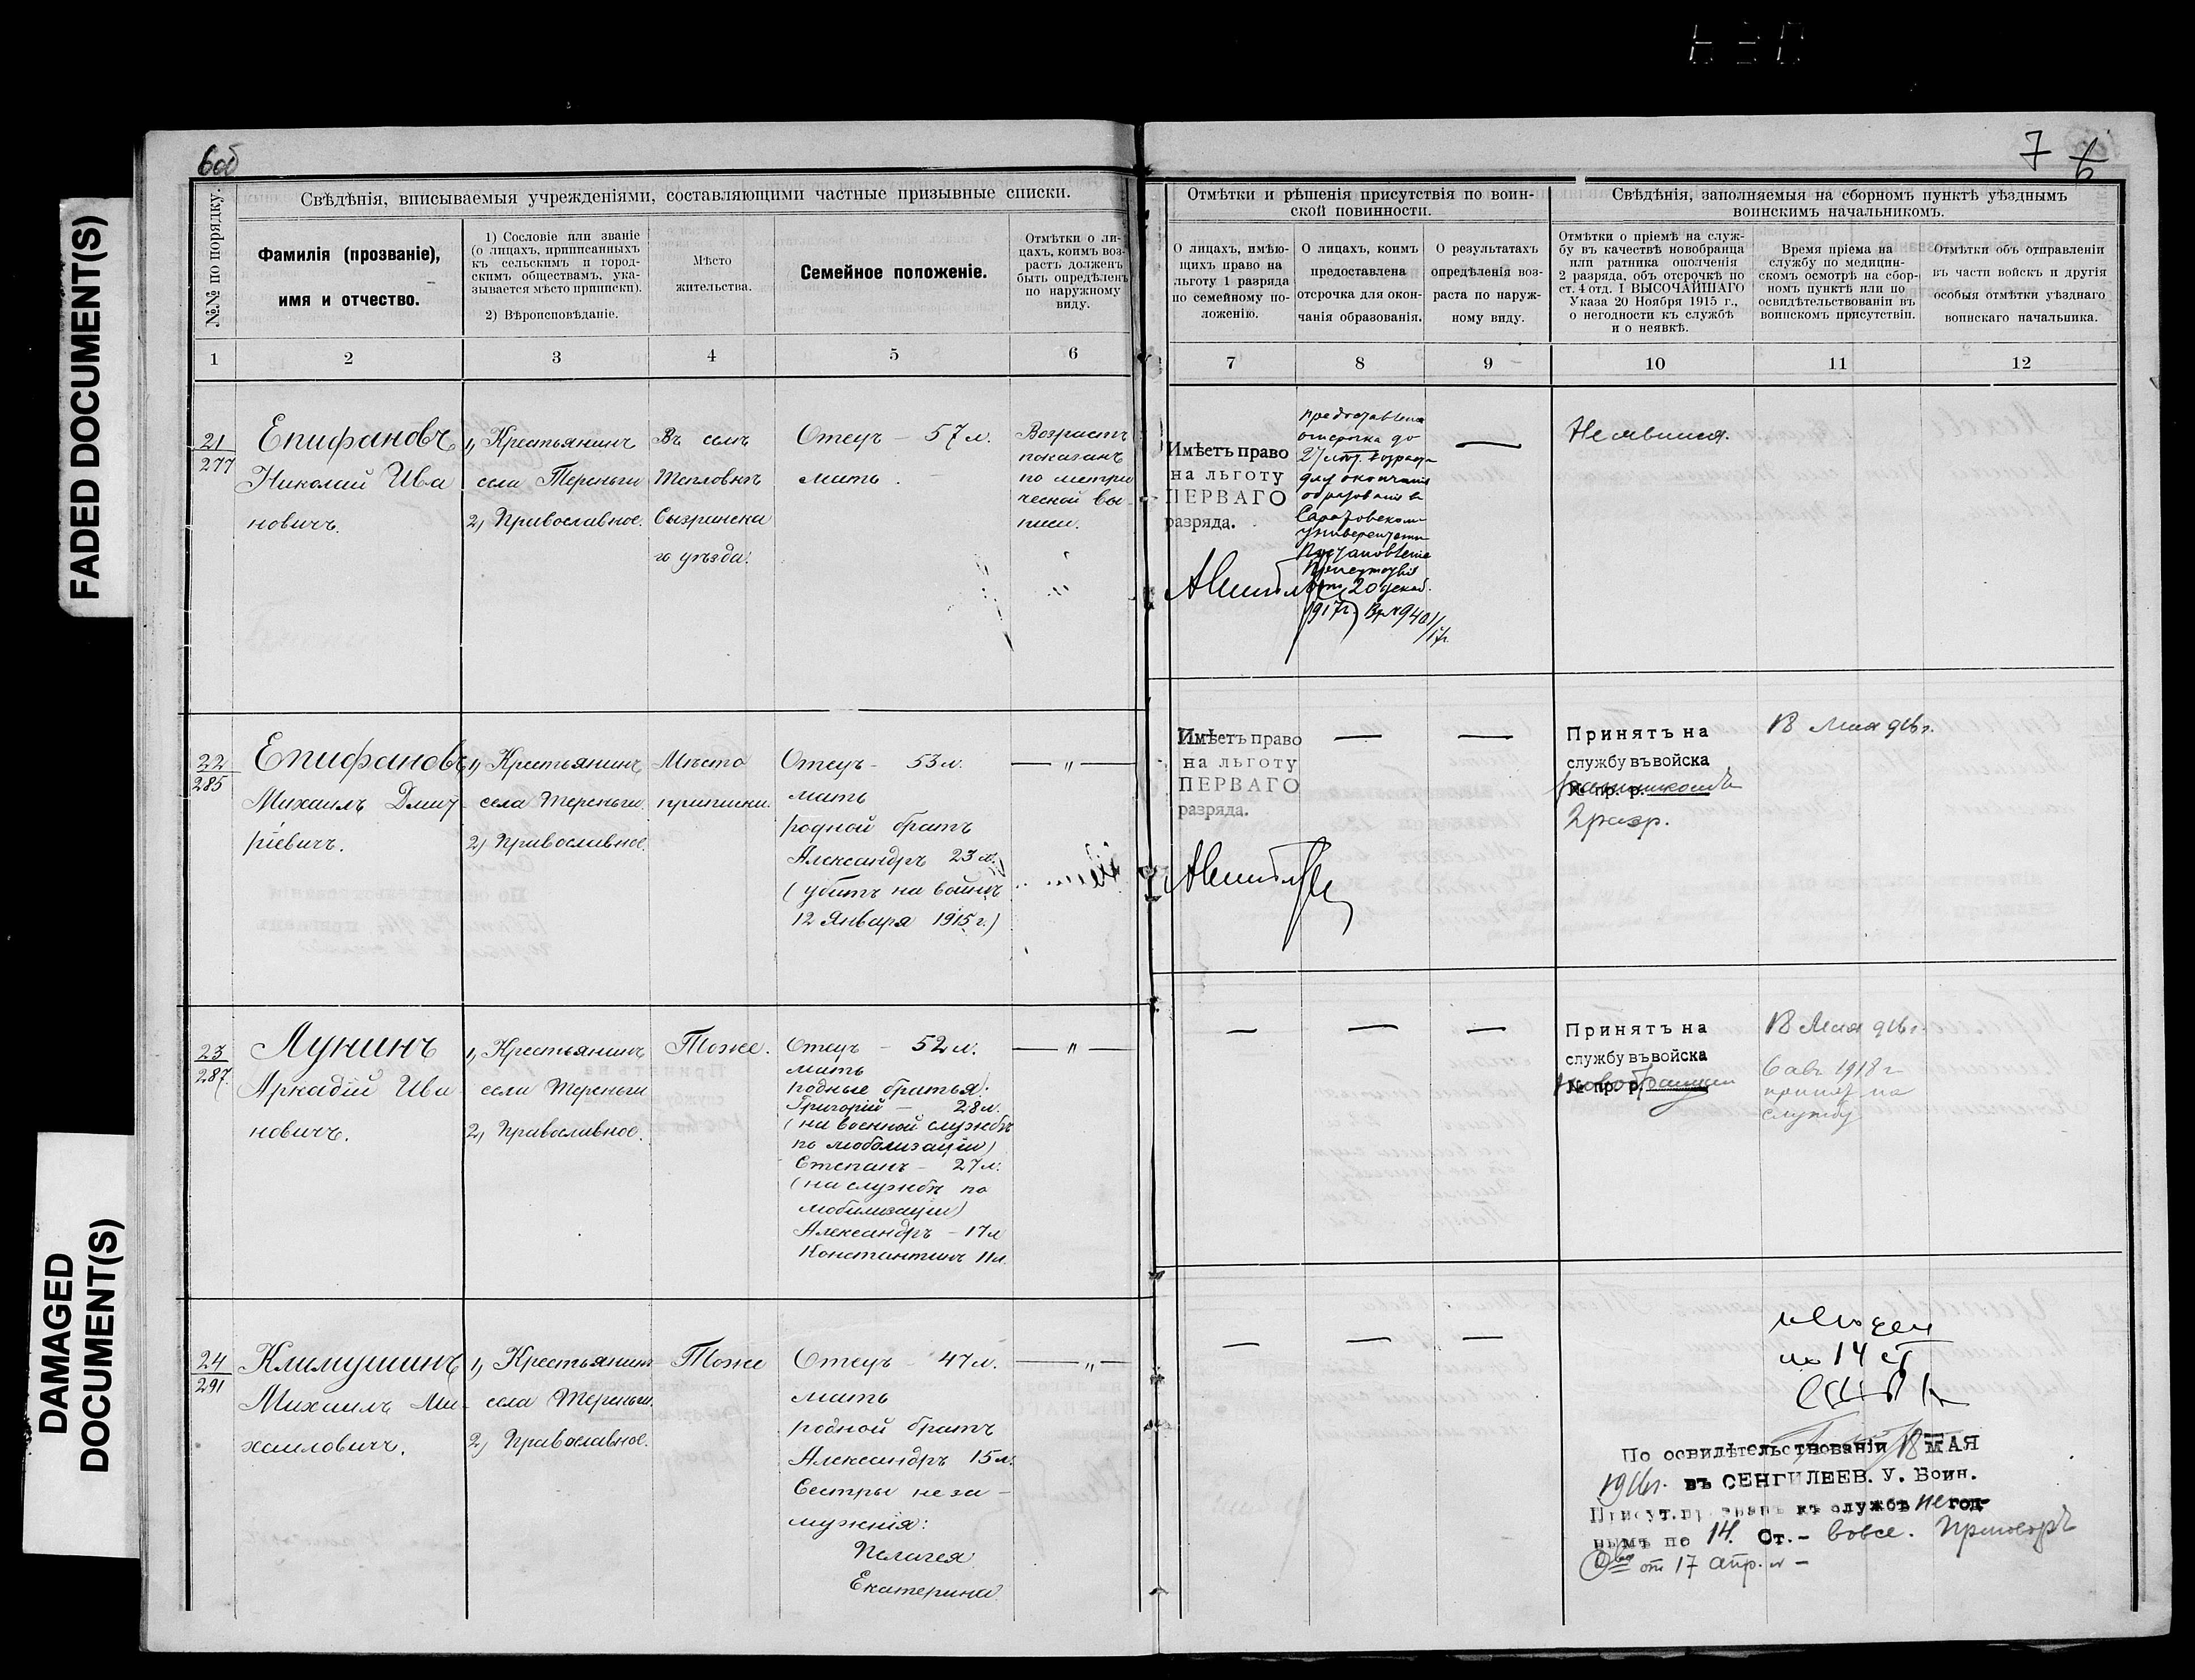 FADED DOCUMENT(S)
DAMAGED
DOCUMENT(S)
6об
7
6
№№ по порядку.
Свѣдѣнія, вписываемыя учрежденіями, составляющими частные призывные списки.
Фамилія (прозваніе),
имя и отчество.
1) Сословіе или званіе
(о лицахъ, приписанныхъ
къ сельскимъ и город-
скимъ обществамъ, ука-
зывается мѣсто приписки).
2) Вѣроисповѣданіе.
Мѣсто
жительства.
Семейное положеніе.
Отмѣтки о ли-
цахъ, коимъ воз-
растъ долженъ
быть опредѣленъ
по наружному
виду.
1 2 3 4 5 6
Отмѣтки и рѣшенія присутствія по воин-
ской повинности.
О лицахъ, имѣю-
щихъ право на
льготу 1 разряда
по семейному по-
ложенію.
О лицахъ, коимъ
предоставлена
отсрочка для окон-
чанія образованія.
О результатахъ
опредѣленія воз-
раста по наруж-
ному виду.
Свѣдѣнія, заполняемыя на сборномъ пунктѣ уѣзднымъ
воинскимъ начальникомъ.
Отмѣтки о пріемѣ на служ-
бу въ качествѣ новобранца
или ратника ополченія
2 разряда, объ отсрочкѣ по
ст. 4 отд. I ВЫСОЧАЙШАГО
Указа 20 Ноября 1915 г.,
о негодности къ службѣ
и о неявкѣ.
Время пріема на
службу по медицин-
скомъ осмотрѣ на сбор-
номъ пунктѣ или по
освидѣтельствованіи въ
воинскомъ присутствіи.
Отмѣтки объ отправленіи
въ части войскъ и другія
особыя отмѣтки уѣзднаго
воинскаго начальника.
7 8 9 10 11 12
21
277
Епифановъ
Николай Ива
новичъ.
1, Крестьянинъ
села Тереньги
2, Православное.
Въ селѣ
Тепловкѣ
Сызранска
го уѣзда.
Отецъ – 57 л.
мать.
Возрастъ
показанъ
по метри
ческой вы-
писи.
Имѣетъ право
на льготу
ПЕРВАГО
разряда.
предоставлена
отсрочка до
27 лѣт. возраста
для окончанія
образованія въ
Саратовском
университетѣ
Постановленіе
Присутствія
от 20 декаб.
1917 г.
—
Не явился.
22
285
Епифановъ
Михаилъ Дмит
ріевичъ.
1, Крестьянинъ
села Тереньги
2, Православное.
Мѣсто
приписки.
Отецъ – 53 л.
мать
родной братъ
Александръ 23 л.
(убитъ на войнѣ
12 Января 1915 г.)
— „ —
Имѣетъ право
на льготу
ПЕРВАГО
разряда.
—
—
Принятъ на
службу въ войска
№ пр. р.
ратникомъ
2 разр.
18 Мая 916 г.
23
287.
Лунинъ
Аркадій Ива
новичъ.
1, Крестьянинъ
села Тереньги
2, Православное.
Тоже.
Отецъ – 52 л.
мать
родные братья:
Григорій – 28 л.
(на военной службѣ
по мобилизаціи)
Степанъ – 27 л.
(на службѣ по
мобилизаціи)
Александръ – 17 л
Константинъ 11 л.
— „ —
—
—
—
Принятъ на
службу въ войска
№ пр. р.
новобранцем
18 Мая 916 г.
6 авг 1918 г
принят на
службу
24
291
Климушинъ
Михаилъ Ми-
хаиловичъ.
1, Крестьянинъ
села Тереньги.
2, Православное.
Тоже
Отецъ 47 л.
мать
родной братъ
Александръ 15 л.
Сестры неза-
мужнія:
Пелагея
Екатерина
— „ —
—
—
—
по 14 ст
По освидѣтельствованіи 18 МАЯ
1916 г. въ СЕНГИЛЕЕВ. У. Воин.
Присут. признанъ къ службѣ негод-
нымъ по 14. Ст. – вовсе.
от 17 апр. –